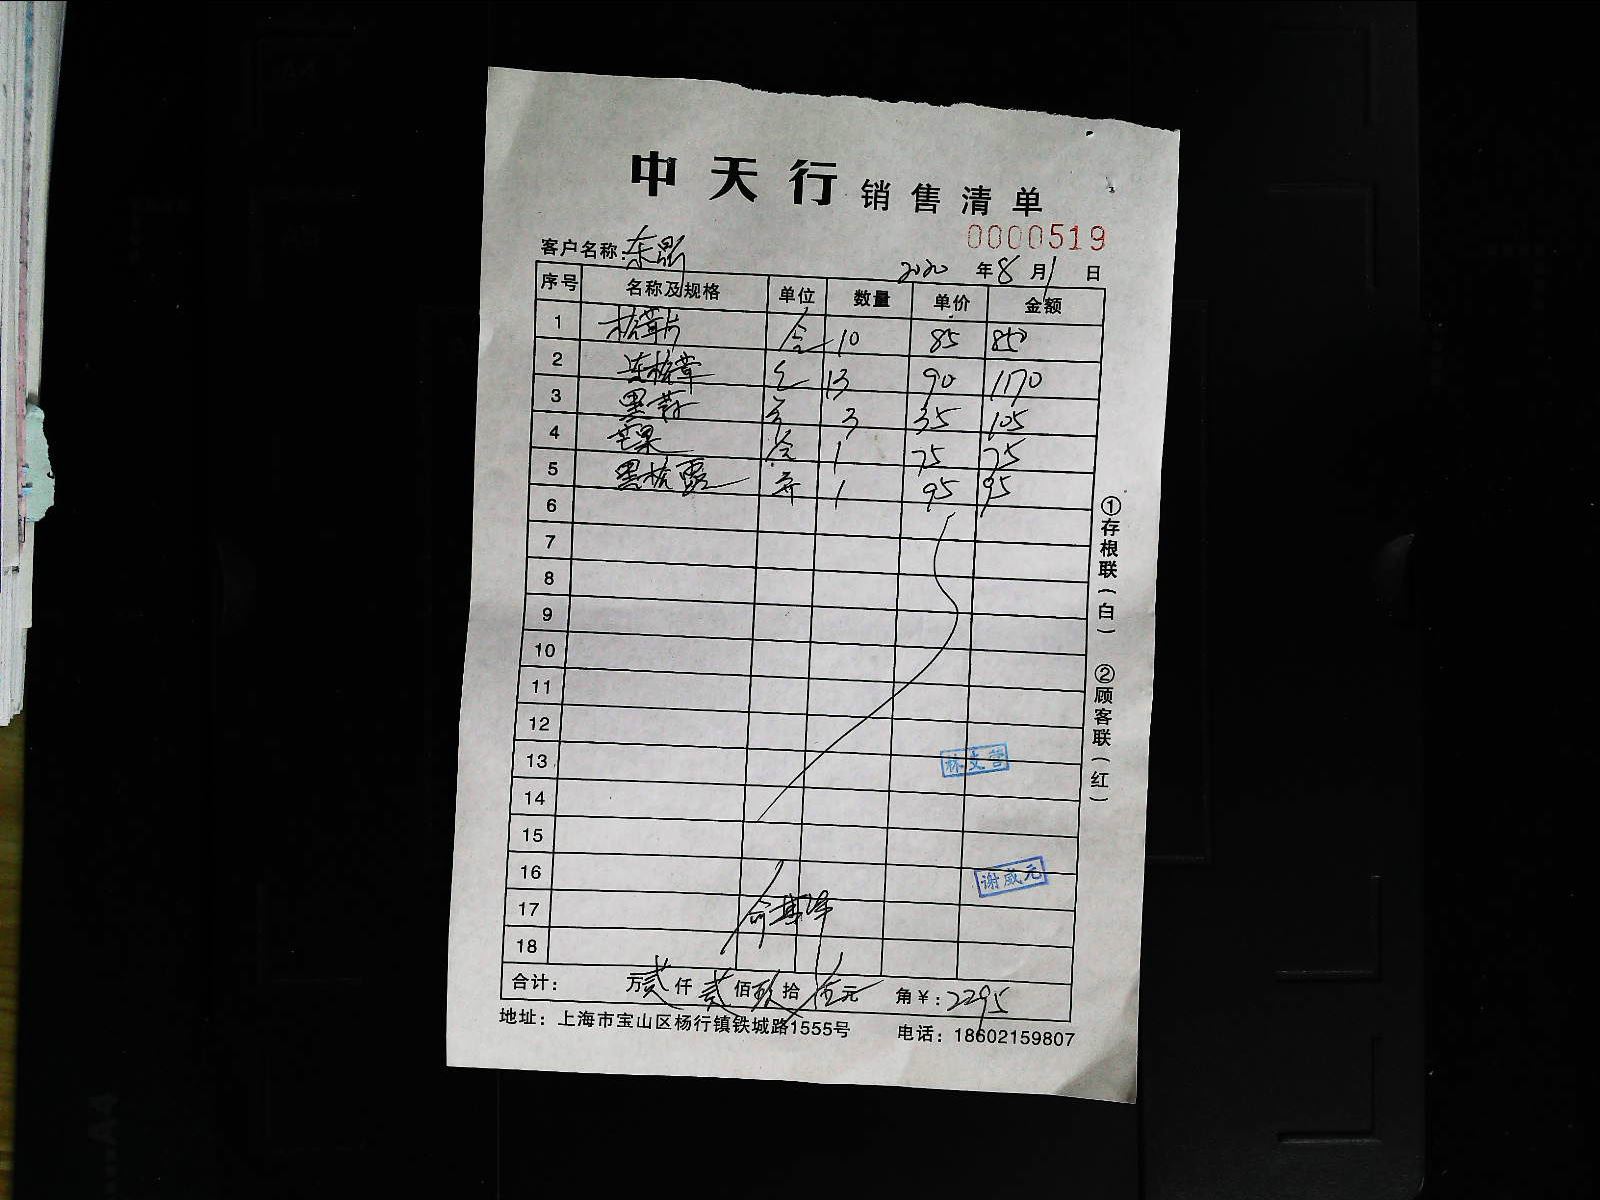 中天行 销售清单
0000519
客户名称：东昴
2020 年 8 月 1 日
序号 名称及规格 单位 数量 单价 金额
1 10 85 850
2 13 90 1170
3 3 35 105
4 芒果 1 75 75
5 1 95 95
6
7
8
9
10
11
12
13
14
15
16
17
18
林支营
谢威元
合计： 万贰仟贰佰玖拾伍元 角￥：2295
地址：上海市宝山区杨行镇铁城路1555号 电话：18602159807
①存根联（白） ②顾客联（红）